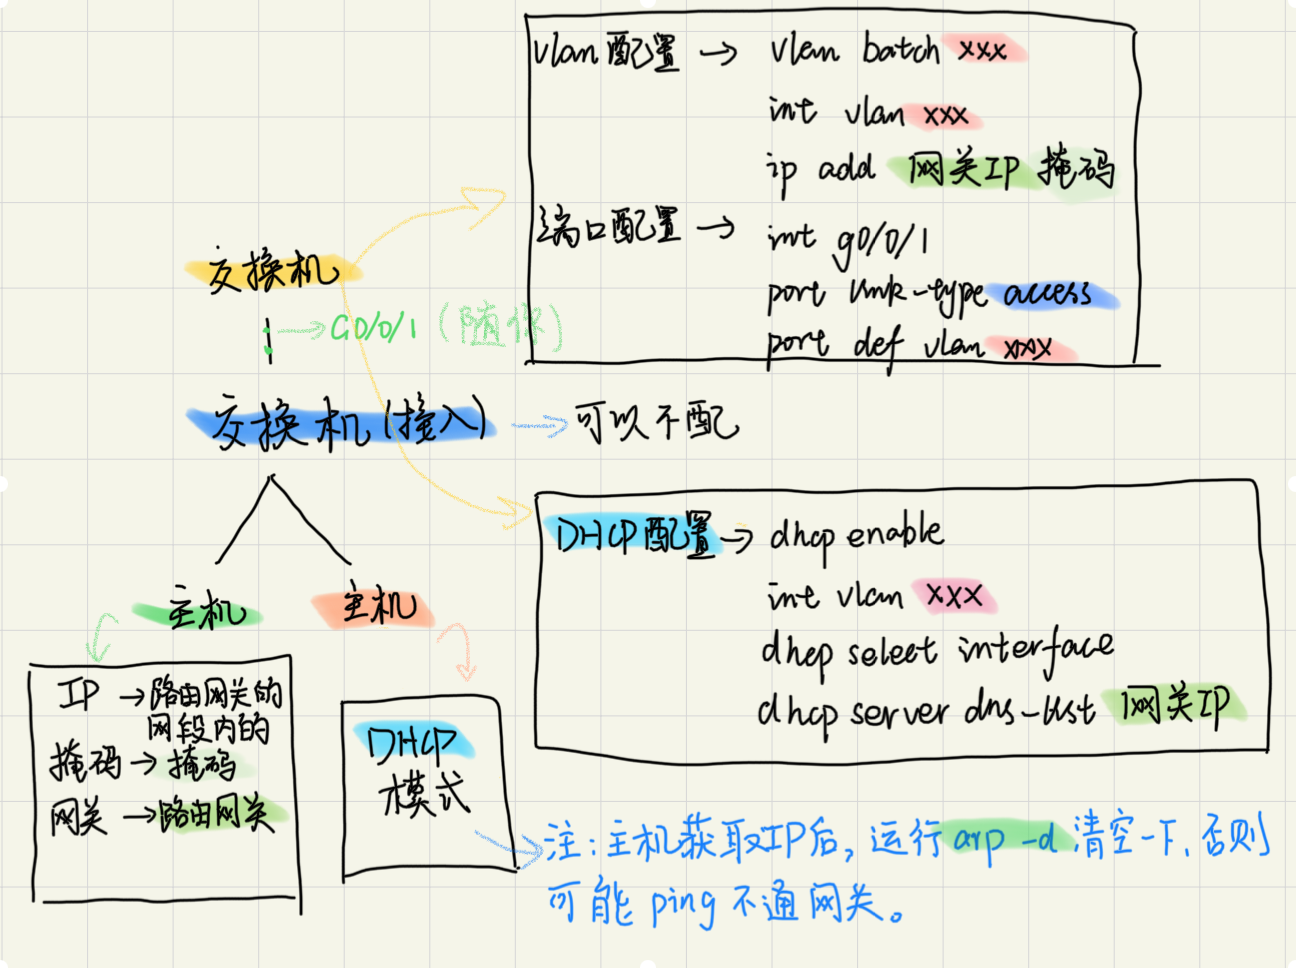 vlan配置 → vlan batch xxx
int vlan xxx
ip add 网关IP 掩码
端口配置 → int g0/0/1
port link-type access
port def vlan xxx
交换机
→ G0/0/1 (随你)
交换机(接入) → 可以不配
DHCP配置 → dhcp enable
int vlan xxx
dhcp select interface
dhcp server dns-list 网关IP
主机 主机
IP → 路由网关的
网段内的
掩码 → 掩码
网关 → 路由网关
DHCP
模式
注:主机获取IP后,运行arp -d 清空一下、否则
可能ping不通网关。